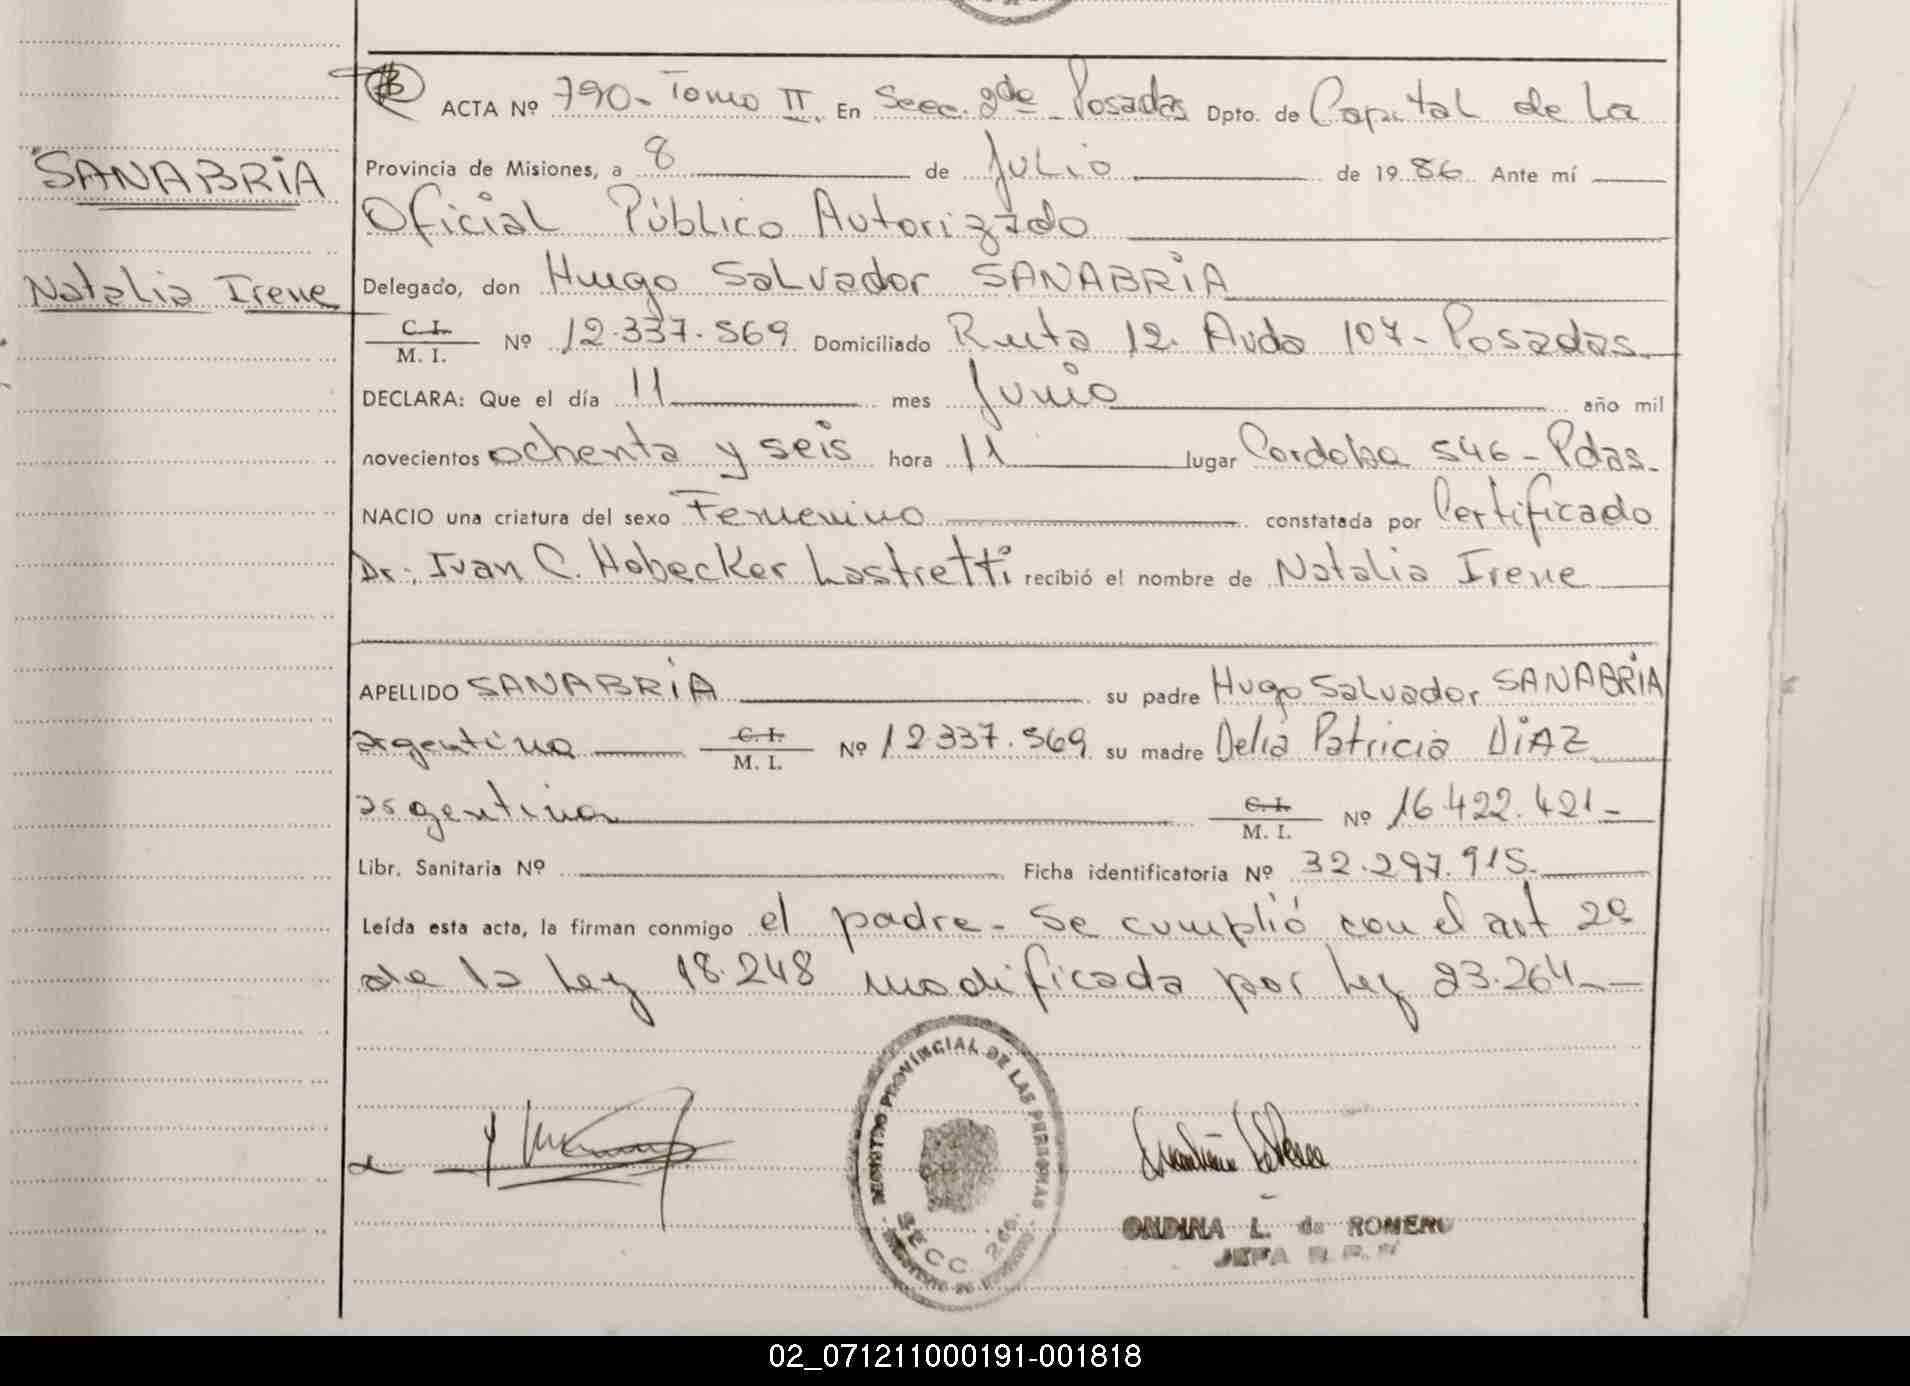 ACTA Nº 790- Tomo II. En Secc. 2da - Posadas Dpto. de Capital de La
Provincia de Misiones, a 8 de Julio de 1986 Ante mí
SANABRIA
Oficial Público Autorizado
Natalia Irene
Delegado, don Hugo Salvador SANABRIA
C. I.
M. I. Nº 12.337.569 Domiciliado Ruta 12. Avda 107- Posadas.
DECLARA: Que el día 11 mes Junio año mil
novecientos ochenta y seis hora 11 lugar Cordoba 546 - Pdas.
NACIO una criatura del sexo Femenino constatada por Certificado
Dr: Ivan C. Hobecker Lastretti recibió el nombre de Natalia Irene
APELLIDO SANABRIA su padre Hugo Salvador SANABRIA
argentino C. I. M. I. Nº 12.337.569 su madre Delia Patricia DIAZ
argentina C. I. M. I. Nº 16.422.421-
Libr. Sanitaria Nº Ficha identificatoria Nº 32.297.915.
Leída esta acta, la firman conmigo el padre - Se cumplió con el art 2º
de la Ley 18.248 modificada por Ley 23.264--
REGISTRO PROVINCIAL DE LAS PERSONAS
SECC 2da.
ONDINA L. de ROMERO
JEFA
02_071211000191-001818